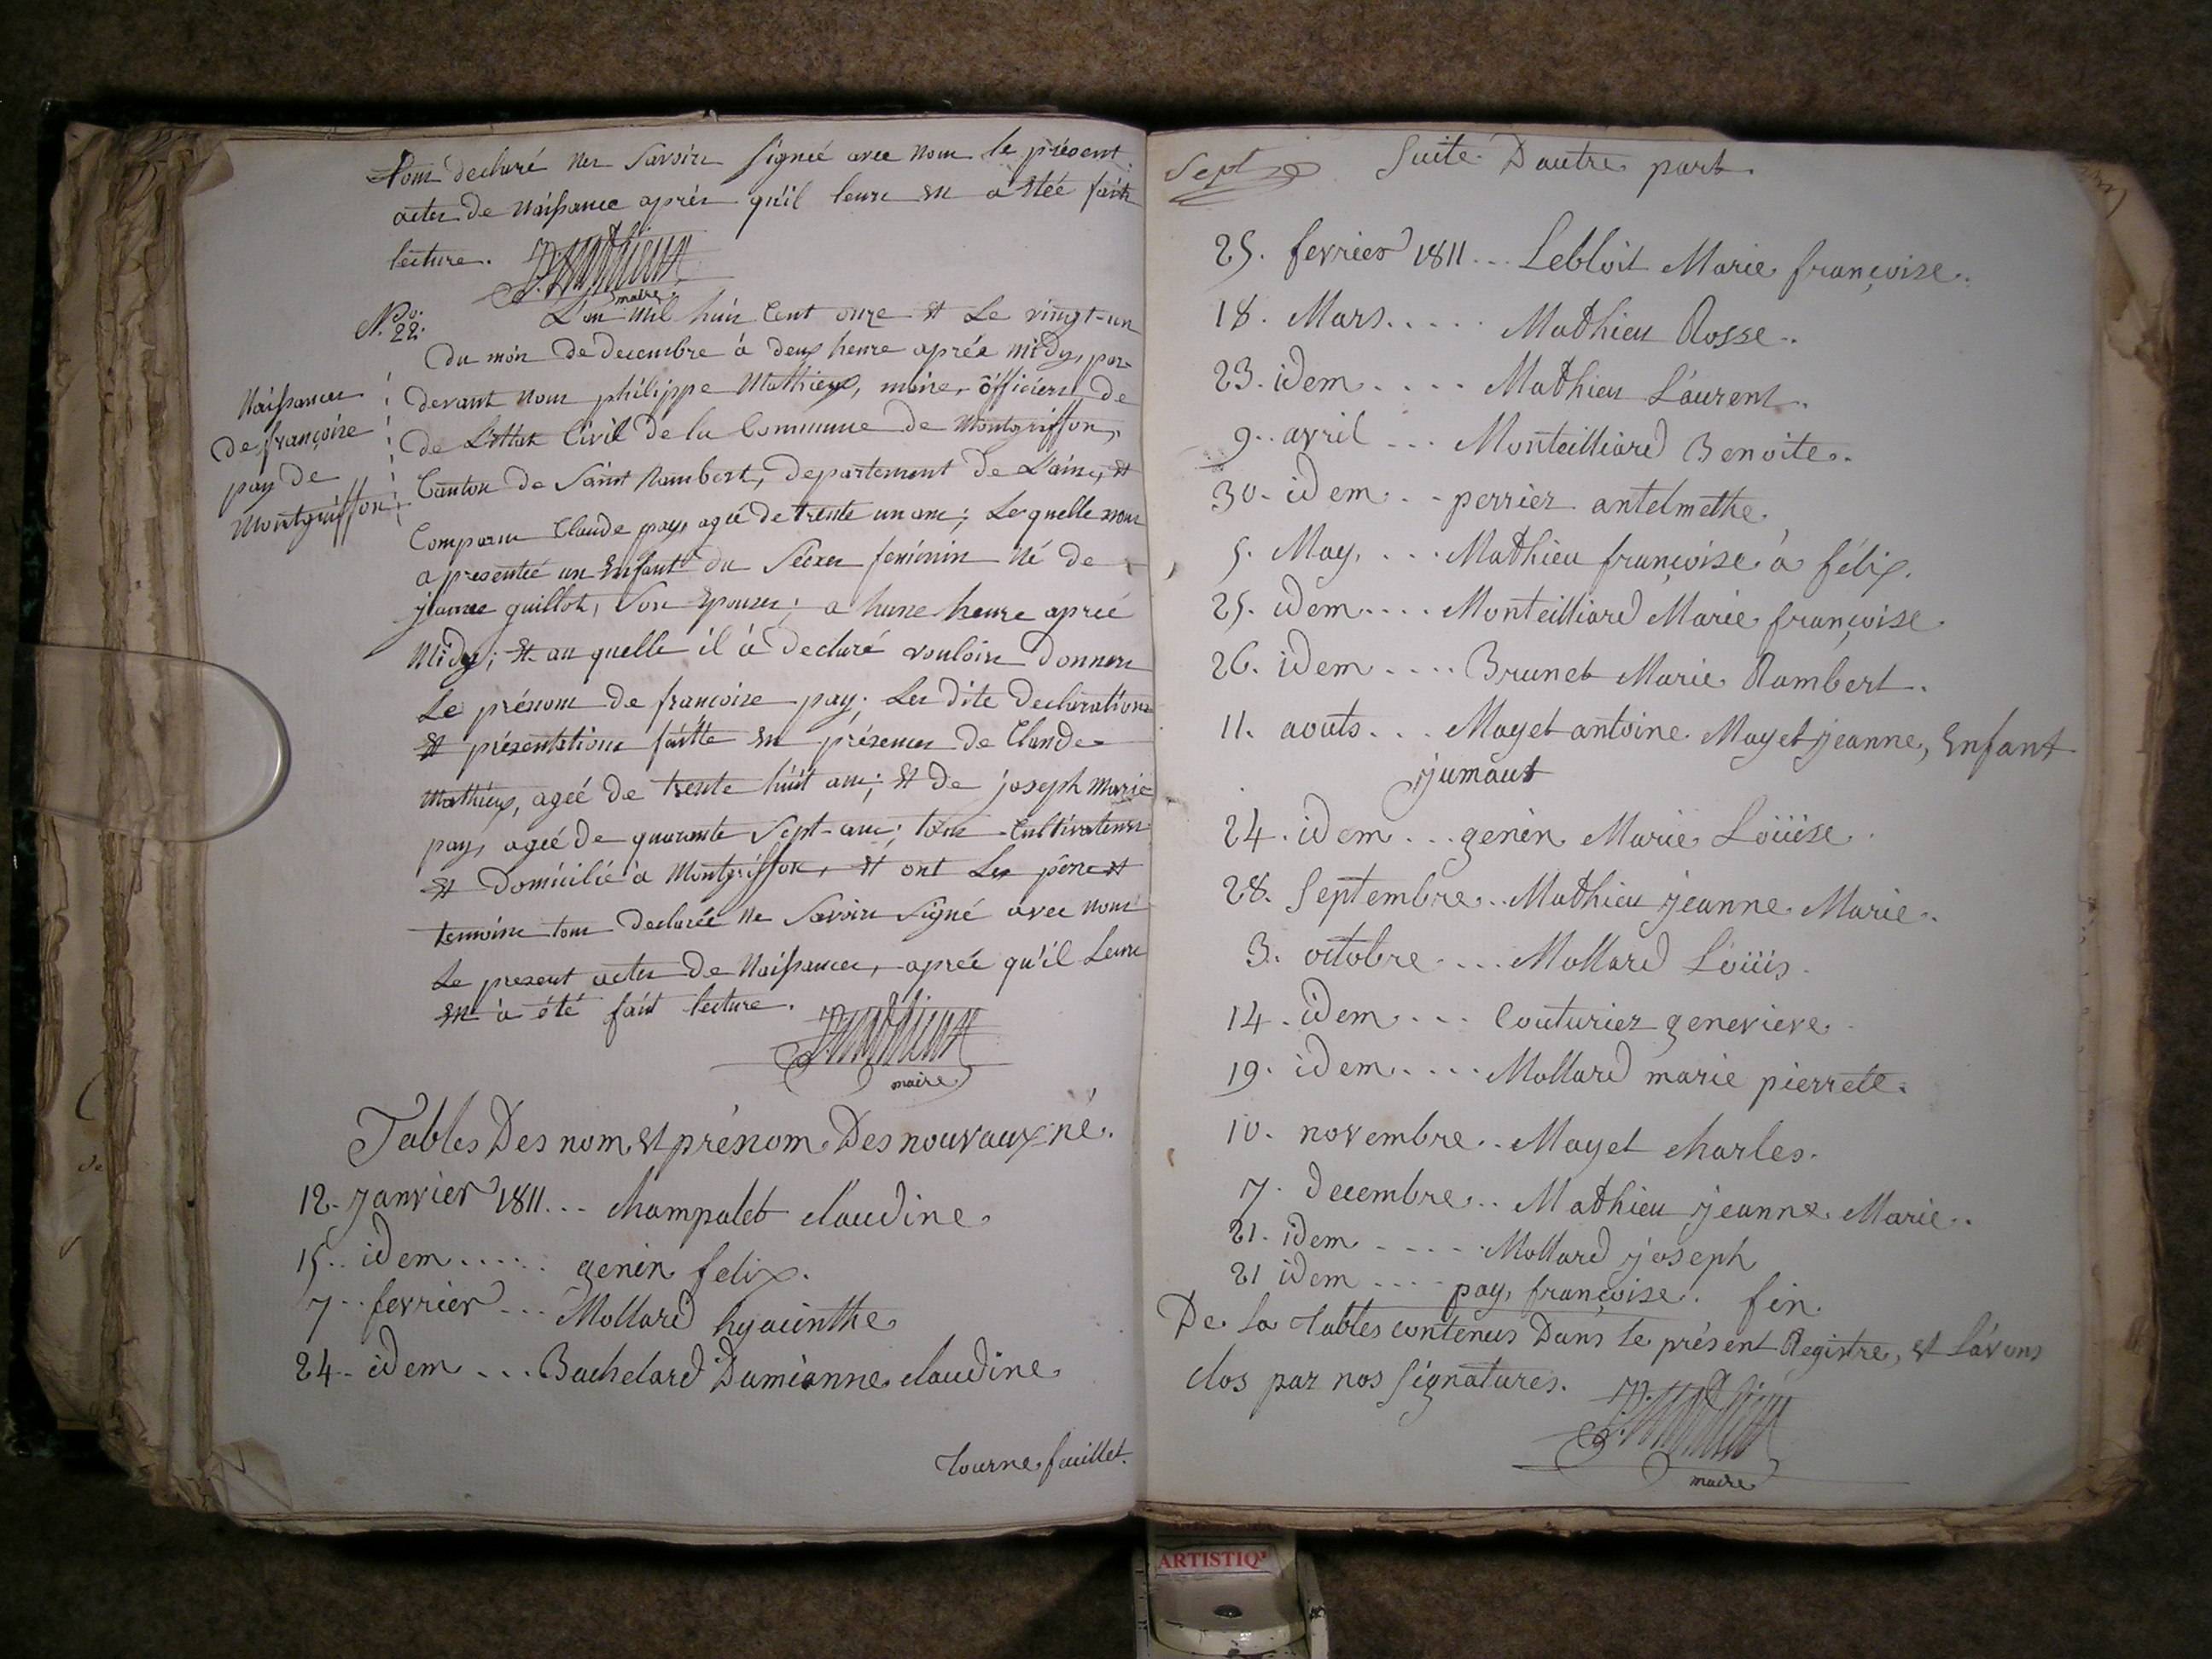 tous declaré ne Savoir Signeé avec nous le présent
acte de Naissance aprés qu'il leurs en a eteé fait
lecture. P. Mathieux
maire
N.º 22.
L'an mil huit Cent onze et Le vingt-un
du mois de decembre à deux heure aprés midy, par-
devant nous philippe Mathieux, maire, officiers, de
de L'ettat Civil de la Commune de Montgriffon,
Canton de Saint Rambert, departement de L'ain, et
Comparu Claude pay, ageé de trente un ans; Lequelle nous
a presenteé un Enfant du Séxes feminin Né de
jeanne guillot, Son Epouse; a hune heure aprés
Midy; et au quelle il à declaré vouloir donner
Le prénom de françoise pay; Les dite declarations
et présentations faitte en présence de Claude
Mathieux, ageé de trente huit ans; et de joseph Marie
pay, ageé de quarante Sept-ans; tous Cultivateurs
et Domicilié à Montgriffon, et ont Les pére et
temoins tous declareé ne Savoir Signé avec nous
Le present acte de Naissance, aprés qu'il Leurs
en à été fait lecture.
P. Mathieux
maire
Naissances
de françoise
pay de
Montgriffon
Tables Des nom et prénom Des nouvaux né.
12. janvier 1811... Champalet Claudine
15.. idem..... genin felix.
7.. fevrier... Mollard hyacinthe
24. idem... Bachelard Damianne Claudine
tourne fouillet.
Sept
Suite D'autre part.
25. fevrier 1811... Lebloit Marie françoise.
18. Mars..... Mathieu Rosse.
23. idem.... Mathieu Laurent.
9.. avril... Monteilliard Benoite.
30. idem.. perrier antelmethe.
5. May,... Mathieu françoise à félix.
25. idem.... Monteilliard Marie françoise.
26. idem.... Brunet Marie Rambert.
11. aouts... Mayet antoine Mayet jeanne, Enfant
jumaut
24. idem... genin Marie Loüise.
28. Septembre.. Mathieu jeanne Marie.
3. octobre.... Mollard Loüis.
14. idem.... Couturier genevieve.
19. idem..... Mollard marie pierrete.
10. novembre.. Mayet Charles.
7. decembre.. Mathieu jeanne Marie.
21. idem..... Mollard joseph
21 idem.... pay, françoise. fin.
De La tables contenus Dans le présent Registre, et L'avons
clos par nos Signatures.
P. Mathieux
maire
ARTISTIQ